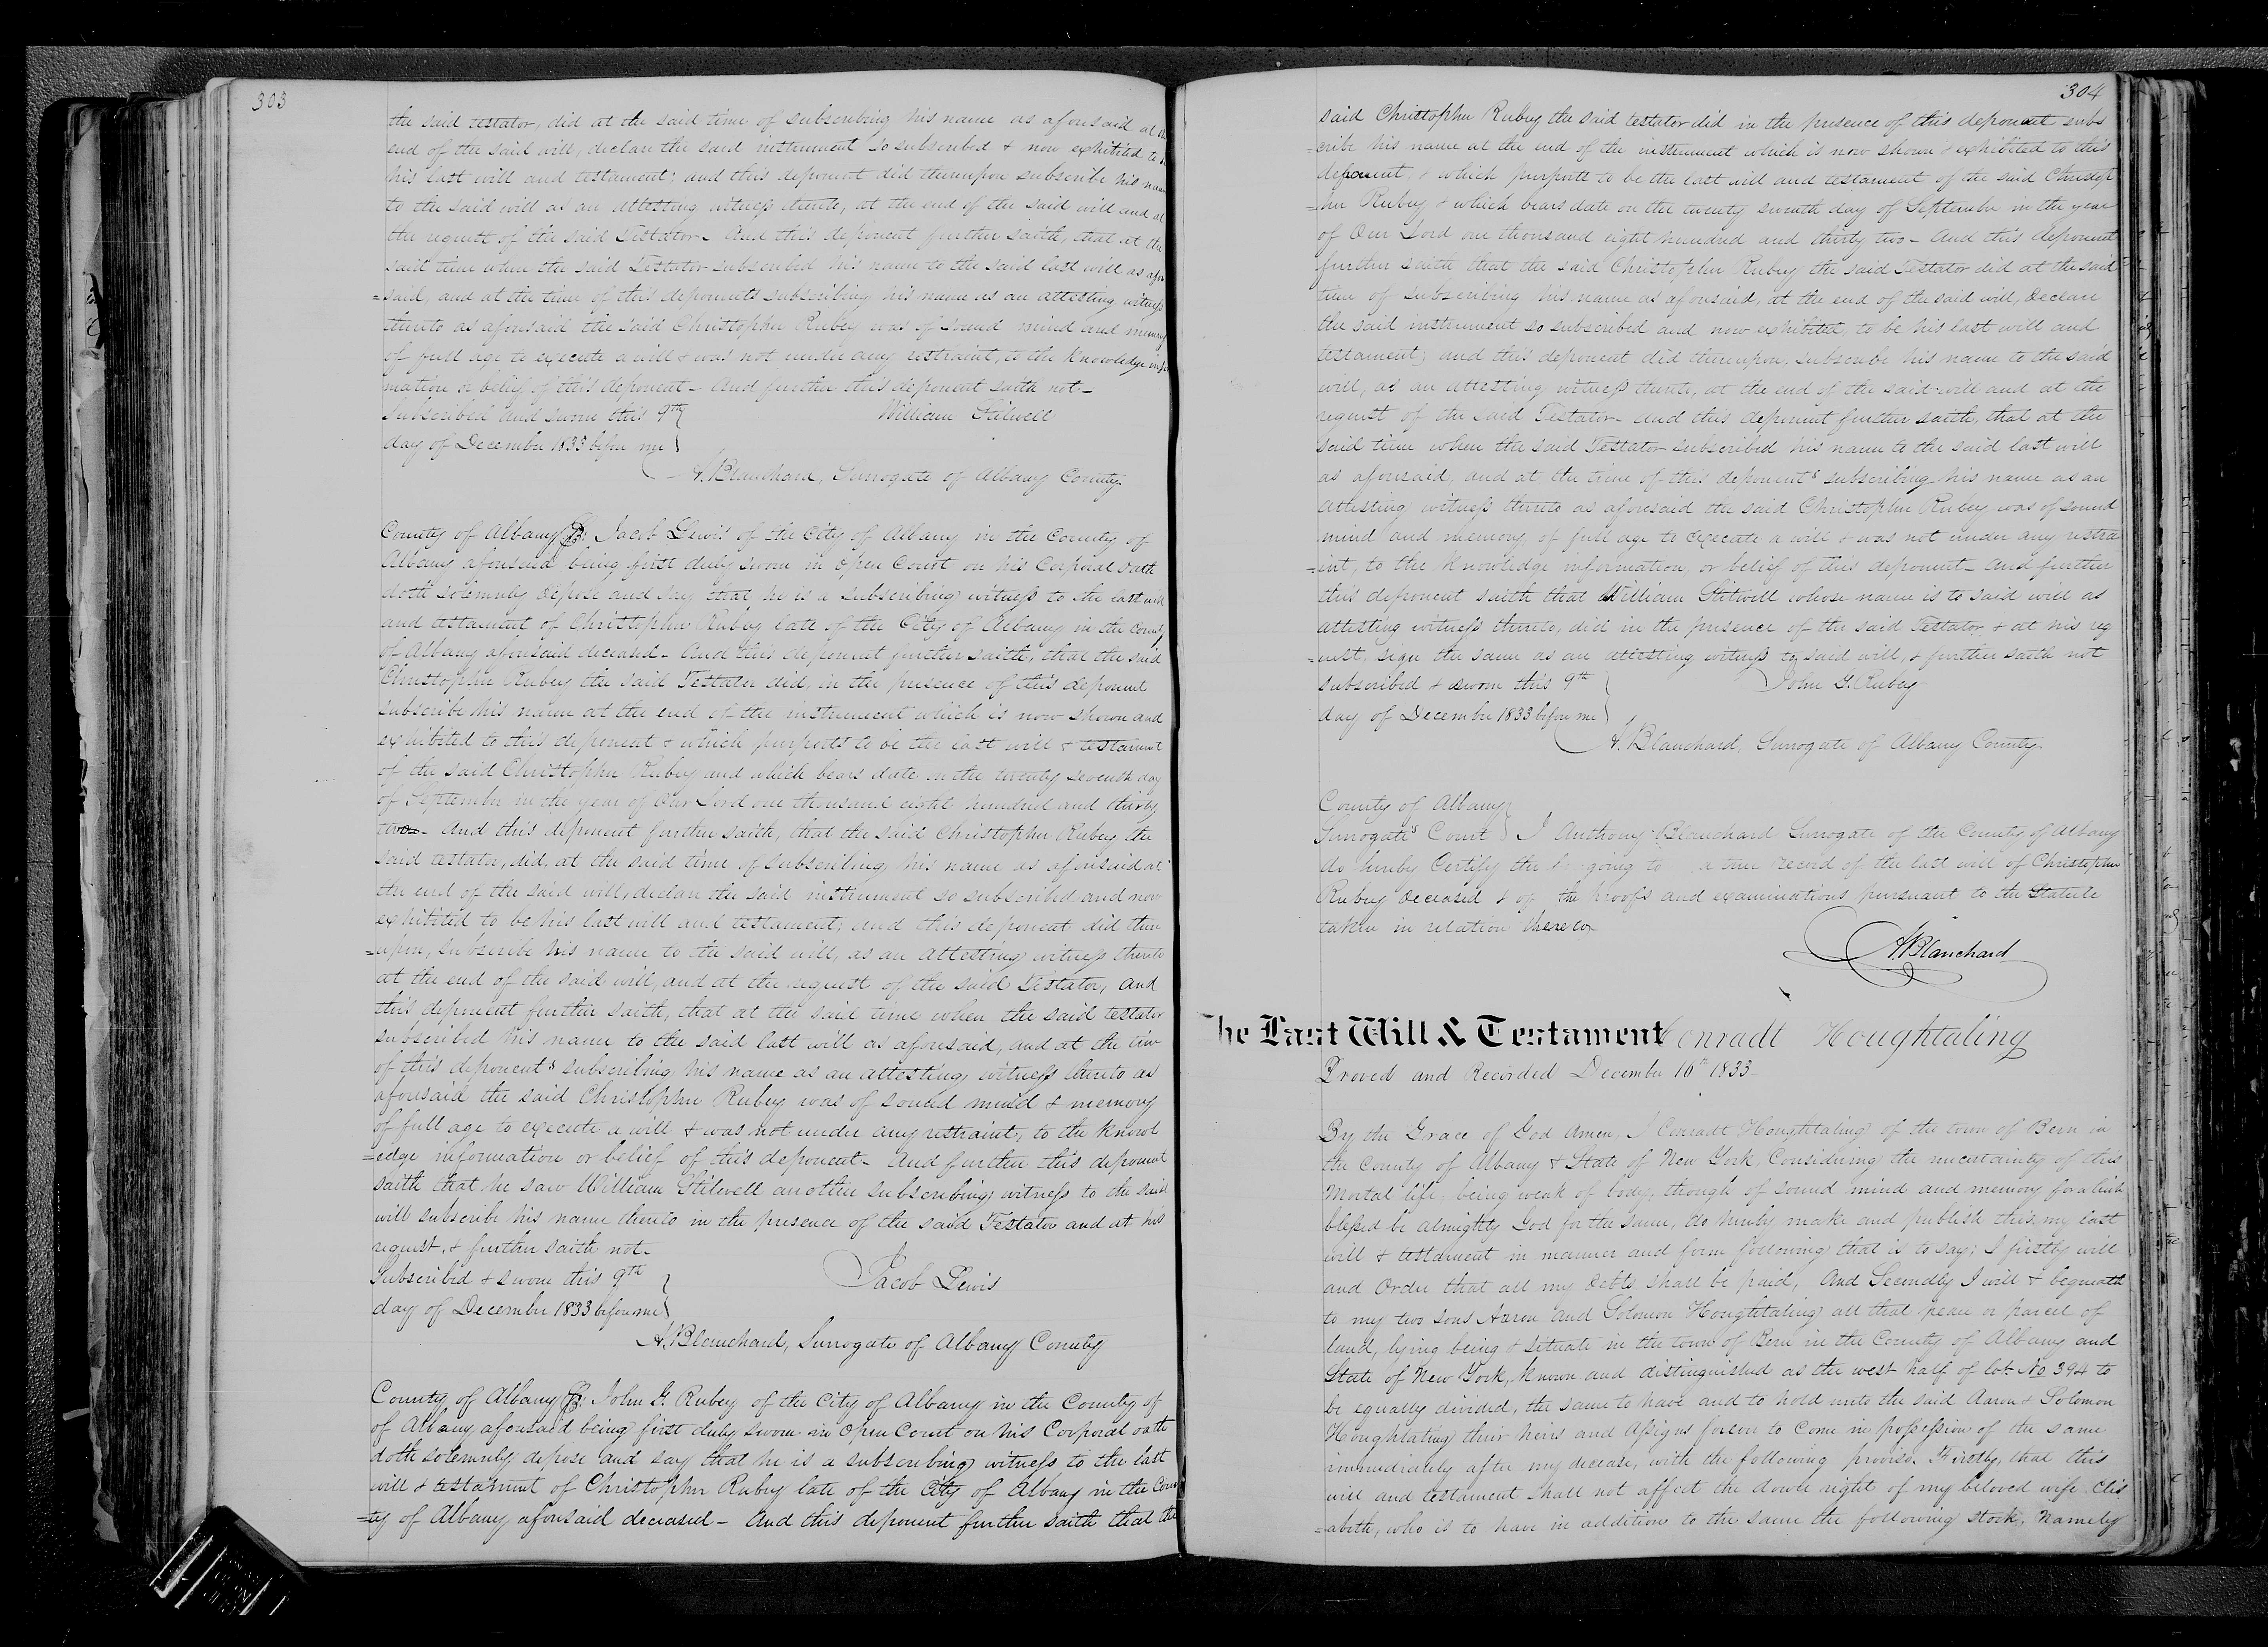 303
the said testator, did at the said time of subscribing his name as aforesaid at the
end of the said will, declare the said instrument so subscribed & now exhibited to be
his last will and testament; and this deponent did thereupon subscribe his name
to the said will as an attesting witness thereto, at the end of the said will and at
the request of the said Testator_ And this deponent further saith, that at the
said time when the said Testator subscribed his name to the said last will as afor
=said, and at the time of this deponents subscribing his name as an attesting witness
thereto as aforesaid the said Christopher Rubey was of sound mind and memory
of full age to execute a will & was not under any restraint, to the knowledge infor
mation or belief of this deponent_ And further this deponent saith not_
Subscribed and sworn this 9th
William Stilwell
day of December 1833 before me
A. Blanchard, Surrogate of Albany County
County of Albany ss: Jacob Lewis of the City of Albany in the County of
Albany aforesaid being first duly sworn in open Court on his Corporal oath
doth solemnly depose and say that he is a subscribing witness to the last will
and testament of Christopher Rubey late of the City of Albany in the County
of Albany aforesaid deceased_ And this deponent further saith, that the said
Christopher Rubey the said Testator did, in the presence of this deponent
subscribe his name at the end of the instrument which is now shown and
exhibited to this deponent & which purports to be the last will & testament
of the said Christopher Rubey and which bears date on the twenty seventh day
of September in the year of Our Lord one thousand eight hundred and thirty
two_ And this deponent further saith, that the said Christopher Rubey the
said testator, did, at the said time of subscribing his name as aforesaid at
the end of the said will, declare the said instrument so subscribed and now
exhibited to be his last will and testament; and this deponent did there
=upon, subscribe his name to the said will, as an attesting witness thereto
at the end of the said will, and at the request of the said Testator, and
this deponent further saith, that at the said time when the said testator
subscribed his name to the said last will as aforesaid, and at the time
of this deponents subscribing his name as an attesting witness thereto as
aforesaid the said Christopher Rubey was of sound mind & memory
of full age to execute a will & was not under any restraint, to the knowl
=edge information or belief of this deponent_ And further this deponent
saith that he saw William Stilwell another subscribing witness to the said
will subscribe his name thereto in the presence of the said Testator and at his
request, & further saith not_
Subscribed & sworn this 9th
Jacob Lewis
day of December 1833 before me
A. Blanchard, Surrogate of Albany County
County of Albany ss: John G. Rubey of the City of Albany in the County of
of Albany aforesaid being first duly sworn in open Court on his Corporal oath
doth solemnly depose and say that he is a subscribing witness to the last
will & testament of Christopher Rubey late of the City of Albany in the Coun
=ty of Albany aforesaid deceased_ And this deponent further saith that the
304
said Christopher Rubey the said testator did in the presence of this deponent subs
=cribe his name at the end of the instrument which is now shown & exhibited to this
deponent, & which purports to be the last will and testament of the said Christop
=her Rubey & which bears date on the twenty seventh day of September in the year
of Our Lord one thousand eight hundred and thirty two_ And this deponent
further saith that the said Christopher Rubey the said Testator did at the said
time of subscribing his name as aforesaid, at the end of the said will, declare
the said instrument so subscribed and now exhibited, to be his last will and
testament; and this deponent did thereupon subscribe his name to the said
will, as an attesting witness thereto, at the end of the said will and at the
request of the said Testator_ And this deponent further saith, that at the
said time when the said Testator subscribed his name to the said last will
as aforesaid, and at the time of this deponents subscribing his name as an
attesting witness thereto as aforesaid the said Christopher Rubey was of sound
mind and memory of full age to execute a will & was not under any restra
=int, to the knowledge information, or belief of this deponent_ And further
this deponent saith that William Stilwell whose name is to said will as
attesting witness thereto, did in the presence of the said Testator & at his req
=uest, sign the same as an attesting witness to said will, & further saith not
Subscribed & sworn this 9th
John G. Rubey
day of December 1833 before me
A. Blanchard, Surrogate of Albany County.
County of Albany
Surrogate's Court I Anthony Blanchard Surrogate of the County of Albany
do hereby Certify the going to a true record of the last will of Christopher
Rubey deceased & of the proofs and examinations pursuant to the Statute
taken in relation thereto_
A. Blanchard
The Last Will & Testament Conradt Houghtaling
Proved and Recorded December 16th 1833
By the Grace of God Amen, I Conradt Houghtaling of the town of Bern in
the County of Albany & State of New York, Considering the uncertainty of this
Mortal life, being weak of body, though of sound mind and memory
blessed be almighty God for the same, do hereby make and publish this my last
will & testament in manner and form following that is to say; I firstly will
and Order that all my debts shall be paid, And Secondly I will & bequeath
to my two sons Aaron and Solomon Houghtaling all that peace or parcel of
land, lying being & situate in the town of Bern in the County of Albany and
State of New York, known and distinguished as the west half of lot No 394 to
be equally divided, the same to have and to hold unto the said Aaron & Solomon
Houghtaling their heirs and Assigns forever to Come in possession of the same
immediately after my decease, with the following proviso. Firstly, that this
will and testament shall not affect the dower right of my beloved wife Elis
=abeth, who is to have in addition to the same the following stock, Namely